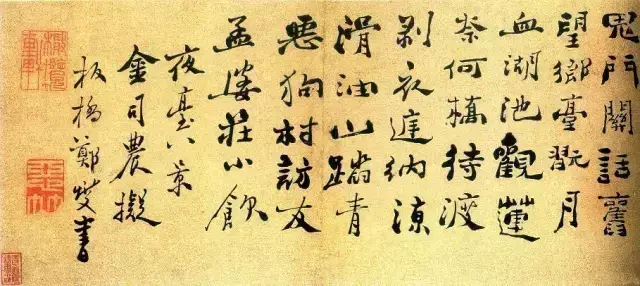 鬼門關話舊
望鄉臺翫月
血湖池觀蓮
奈何橋待渡
剝衣納涼
滑油山蹋青
惡狗村訪友
孟婆莊小飲
夜臺八景
金司農擬
板橋鄭燮書